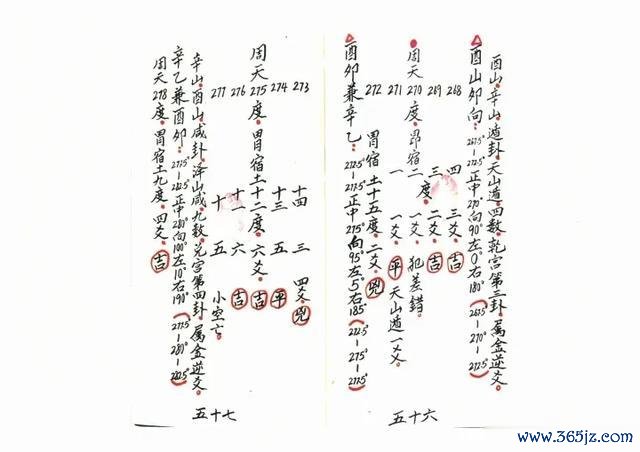 酉山、辛山、遁卦、天山遁、四数、乾宫第三卦、属金逆爻。
酉山卯向：267.5°－272.5°正中270°向90°左0°右180°（267.5°－270°－272.5°）
268 四 三爻 吉
269 三度 二爻 吉
周天270度、昴宿二 一爻、犯差错。
271 一 一爻 平 天山遁一爻。
272 胃宿土十五度、二爻 凶
酉卯兼辛乙：272.5°－277.5°正中275°向95°左5°右185°（272.5°－275°－277.5°）
五十六
273 十四 三 四爻 凶
274 十三 五 平
周天275度、胃宿土十二度、六爻 吉
276 十一 六 吉
277 十 五 小空亡。
辛山、酉山咸卦、泽山咸、九数、兑宫第四卦、属金逆爻。
辛乙兼酉卯：277.5°－282.5°正中280°向100°左10°右190°（277.5°－280°－282.5°）
周天278度、胃宿土九度、四爻 吉
五十七
www.365jz.com